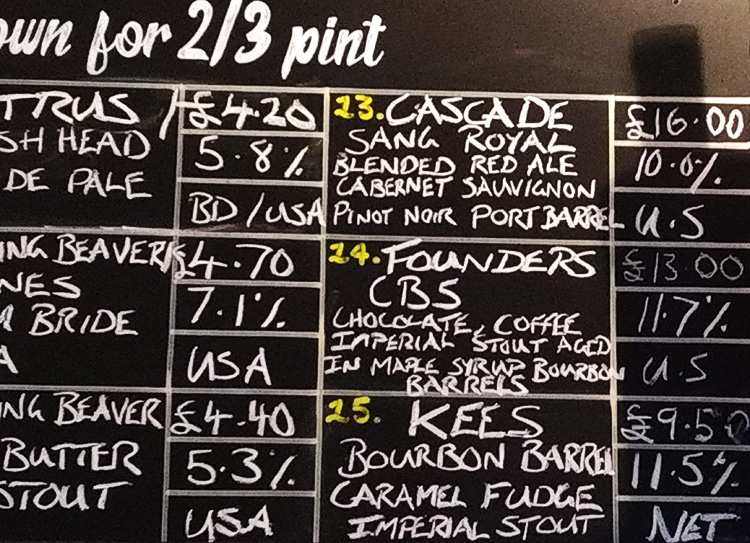 own for 2/3 pint
TRUS
SH HEAD
DE PALE
£4.20
5.8%
BD/USA
23. CASCADE
SANG ROYAL
BLENDED RED ALE
CABERNET SAUVIGNON
PINOT NOIR PORT BARREL
£16.00
10.0%
U.S
ING BEAVER/
NES
BRIDE
A
£4.70
7.1%
USA
24. FOUNDERS
CBS
CHOCOLATE, COFFEE
IMPERIAL STOUT AGED
IN MAPLE SYRUP BOURBON
BARRELS
£13.00
11.7%
U.S
ING BEAVER
BUTTER
STOUT
£4.40
5.3%
USA
25. KEES
BOURBON BARREL
CARAMEL FUDGE
IMPERIAL STOUT
£9.50
11.5%
NET